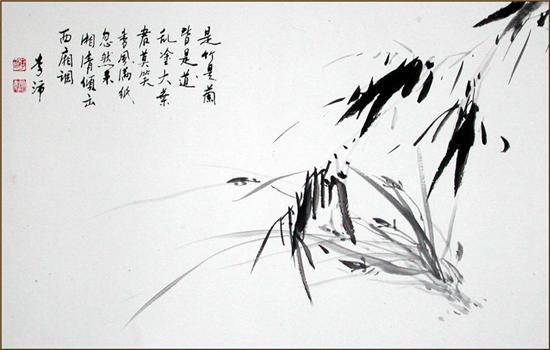 是竹是蘭
皆是道
乱塗大葉
君莫笑
香風滿紙
忽然来
湘清傾出
西廂調
李沛